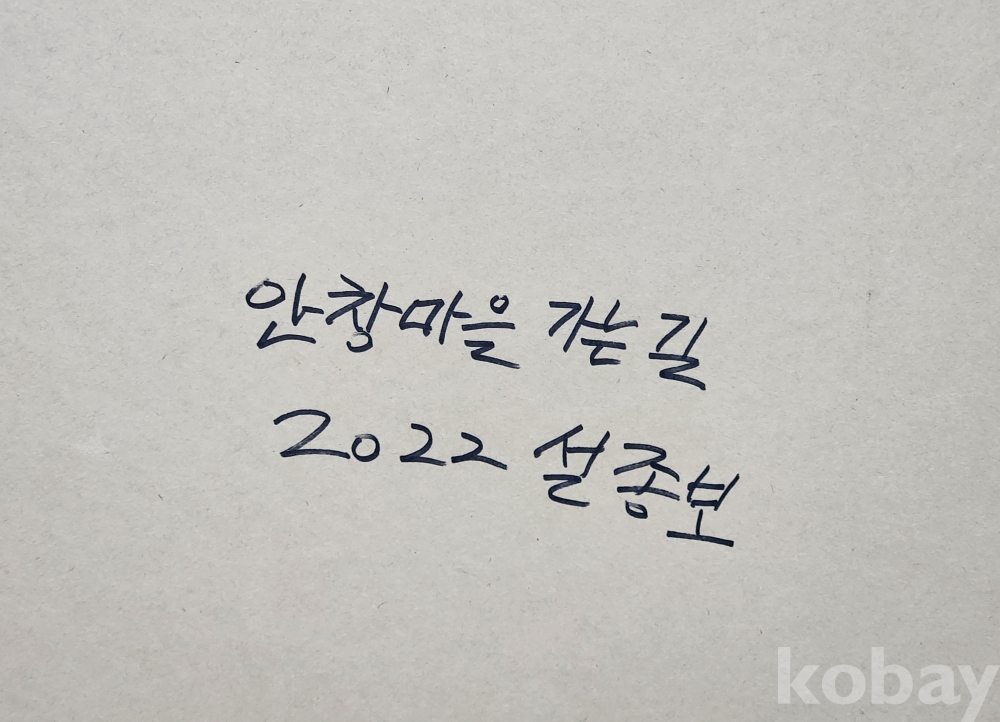 안창마을 가는 길
2022 설종보
kobay